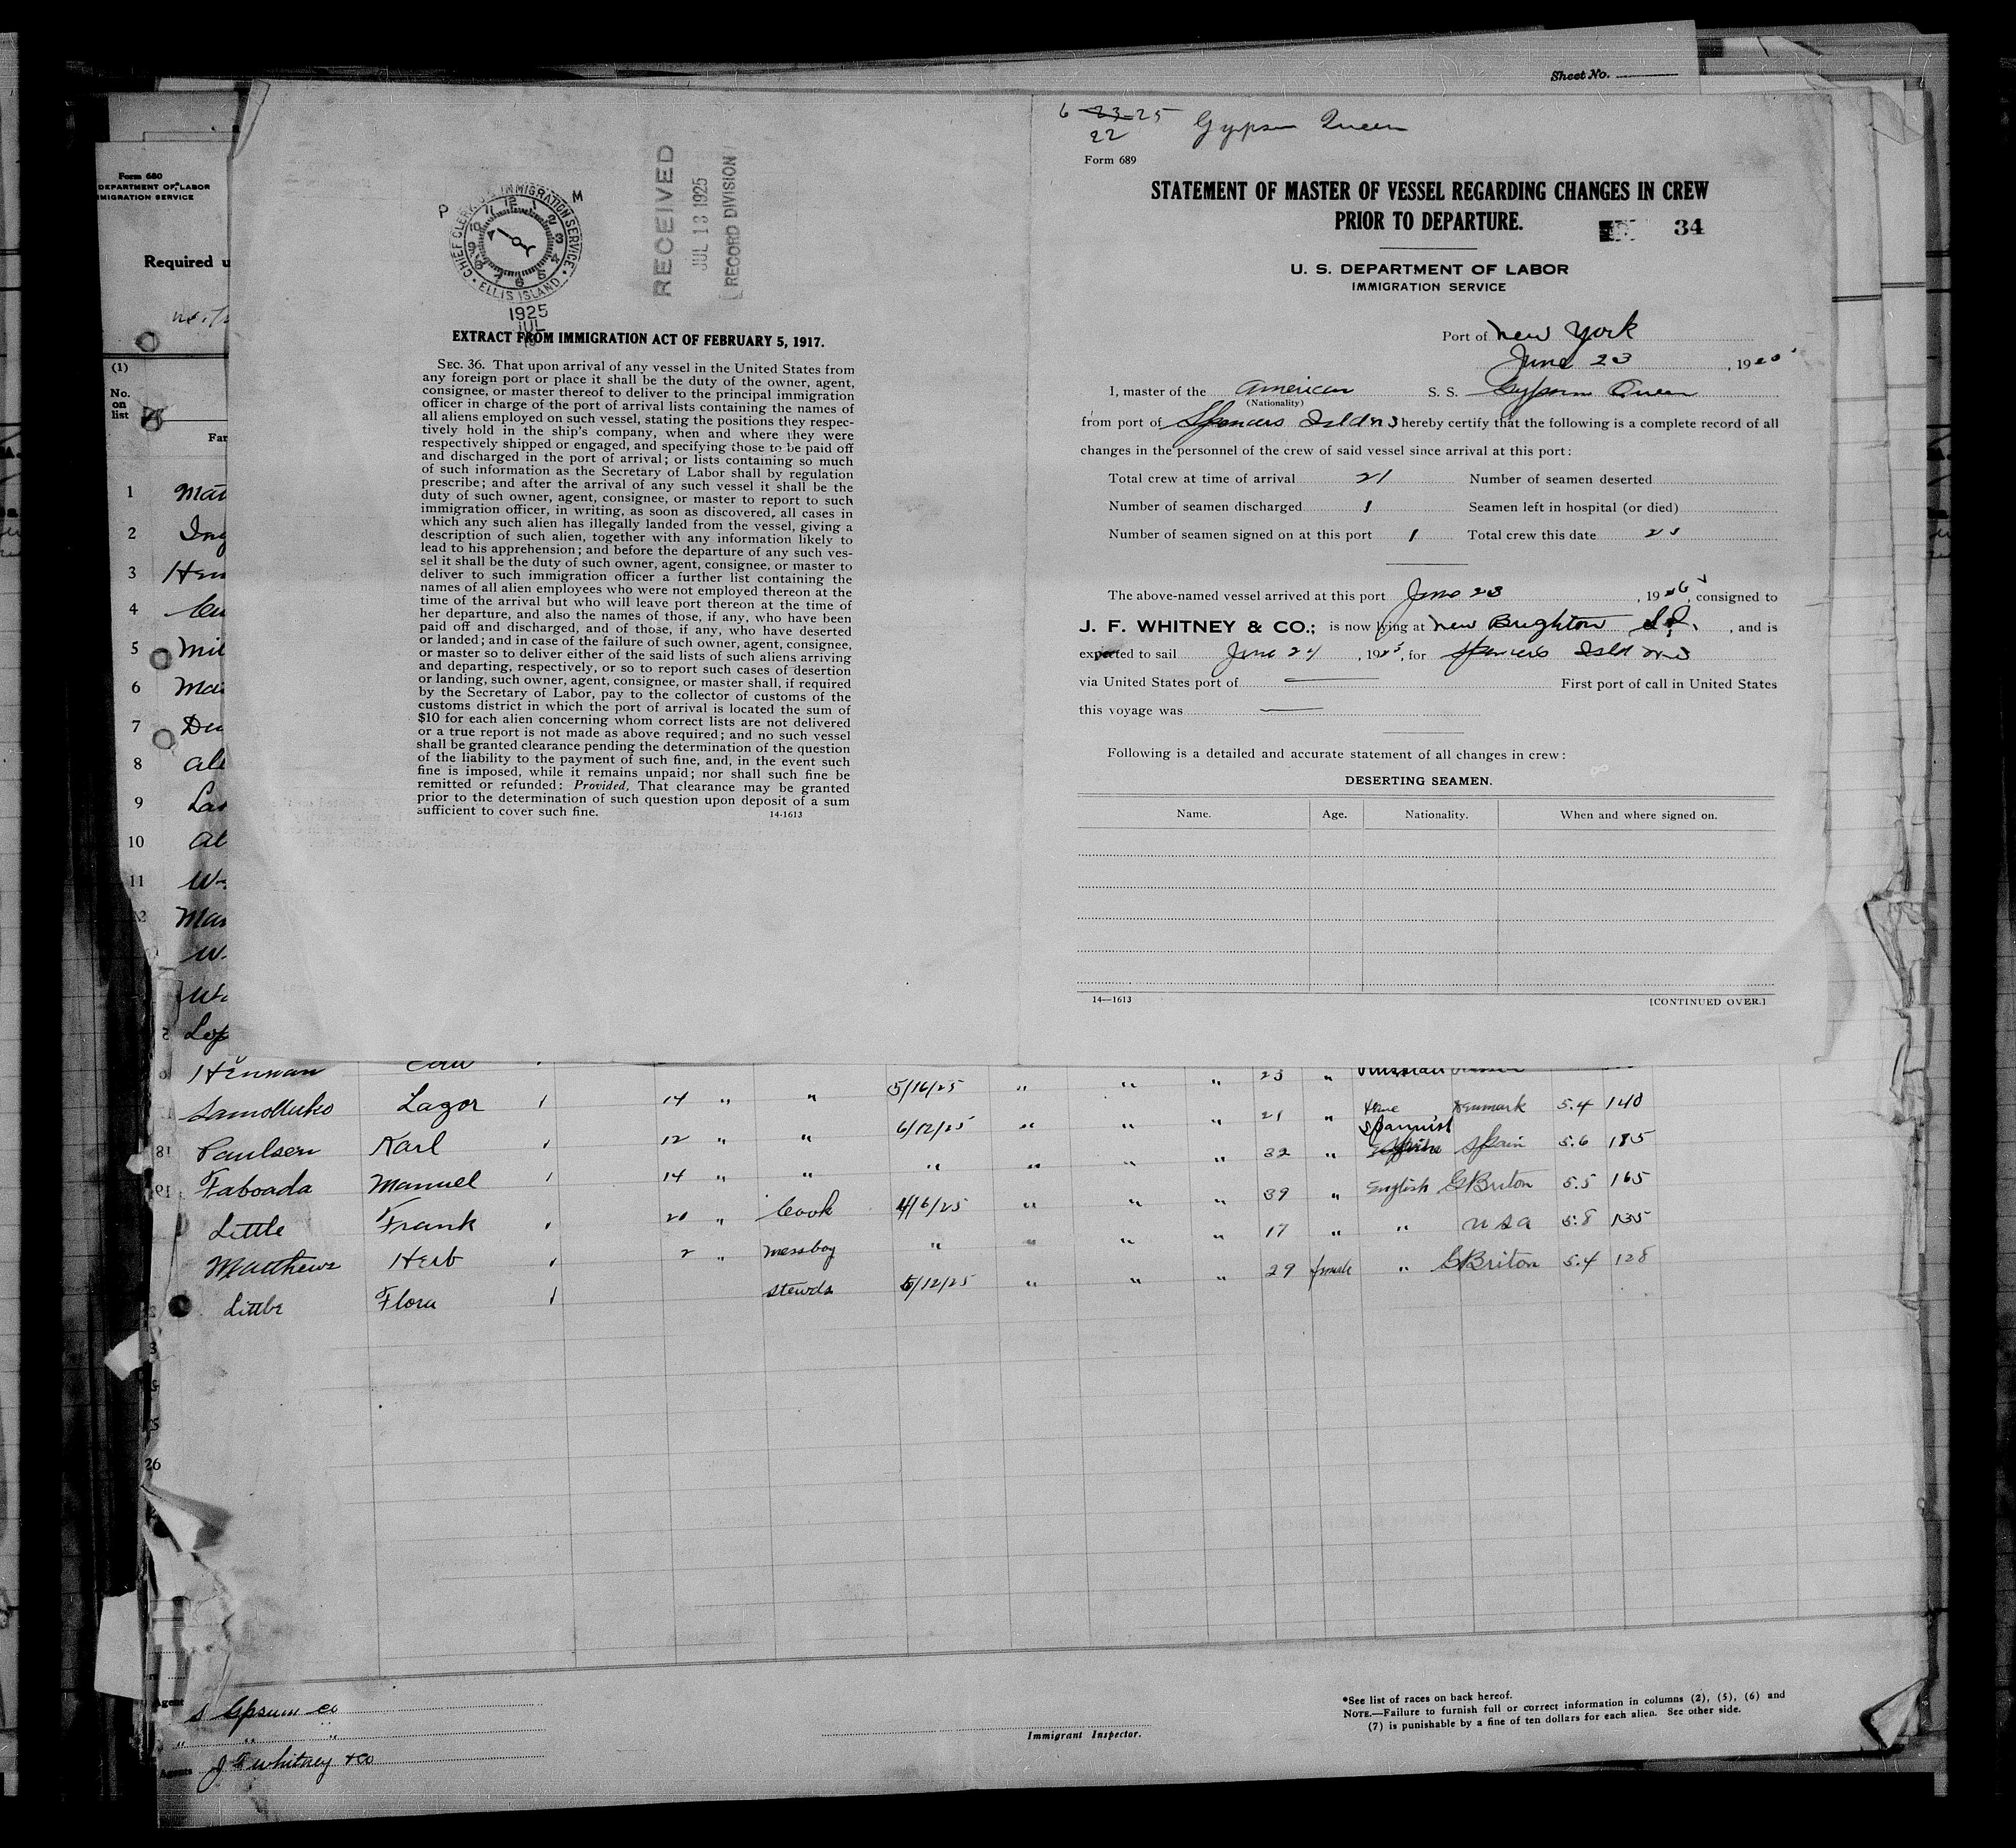 Sheet No.
Form 680
DEPARTMENT OF LABOR
IMMIGRATION SERVICE
Required u
(1)
No.
on
list
Far
1 Mat
2 Ing
3 Hen
4
5 Mil
6 Mar
7
8 Ale
9 Las
10 Al
11 W
2 Mar
W
W
Lop
P M
CHIEF CLERK U.S. IMMIGRATION SERVICE
ELLIS ISLAND
1925
JUL
RECEIVED
JUL 13 1925
RECORD DIVISION
EXTRACT FROM IMMIGRATION ACT OF FEBRUARY 5, 1917.
SEC. 36. That upon arrival of any vessel in the United States from
any foreign port or place it shall be the duty of the owner, agent,
consignee, or master thereof to deliver to the principal immigration
officer in charge of the port of arrival lists containing the names of
all aliens employed on such vessel, stating the positions they respec-
tively hold in the ship's company, when and where they were
respectively shipped or engaged, and specifying those to be paid off
and discharged in the port of arrival; or lists containing so much
of such information as the Secretary of Labor shall by regulation
prescribe; and after the arrival of any such vessel it shall be the
duty of such owner, agent, consignee, or master to report to such
immigration officer, in writing, as soon as discovered, all cases in
which any such alien has illegally landed from the vessel, giving a
description of such alien, together with any information likely to
lead to his apprehension; and before the departure of any such ves-
sel it shall be the duty of such owner, agent, consignee, or master to
deliver to such immigration officer a further list containing the
names of all alien employees who were not employed thereon at the
time of the arrival but who will leave port thereon at the time of
her departure, and also the names of those, if any, who have been
paid off and discharged, and of those, if any, who have deserted
or landed; and in case of the failure of such owner, agent, consignee,
or master so to deliver either of the said lists of such aliens arriving
and departing, respectively, or so to report such cases of desertion
or landing, such owner, agent, consignee, or master shall, if required
by the Secretary of Labor, pay to the collector of customs of the
customs district in which the port of arrival is located the sum of
$10 for each alien concerning whom correct lists are not delivered
or a true report is not made as above required; and no such vessel
shall be granted clearance pending the determination of the question
of the liability to the payment of such fine, and, in the event such
fine is imposed, while it remains unpaid; nor shall such fine be
remitted or refunded: Provided, That clearance may be granted
prior to the determination of such question upon deposit of a sum
sufficient to cover such fine. 14-1613
6 23-25 Gypsum Queen
22
Form 689
STATEMENT OF MASTER OF VESSEL REGARDING CHANGES IN CREW
PRIOR TO DEPARTURE.
34
U. S. DEPARTMENT OF LABOR
IMMIGRATION SERVICE
Port of New York
June 23, 1925
I, master of the American S. S. Gypsum Queen
(Nationality)
from port of Spencers Isld NS hereby certify that the following is a complete record of all
changes in the personnel of the crew of said vessel since arrival at this port:
Total crew at time of arrival 21 Number of seamen deserted
Number of seamen discharged 1 Seamen left in hospital (or died)
Number of seamen signed on at this port 1 Total crew this date 21
The above-named vessel arrived at this port June 23, 1925, consigned to
J. F. WHITNEY & CO.; is now lying at New Brighton S.I., and is
expected to sail June 24, 1925, for Spencers Isld NS
via United States port of — First port of call in United States
this voyage was —
Following is a detailed and accurate statement of all changes in crew:
DESERTING SEAMEN.
Name. Age. Nationality. When and where signed on.
14—1613 [CONTINUED OVER.]
Henman 23 "
Samollenko Lazor 1 14 " " 5/16/25 " " " 21 " Dane Denmark 5.4 140
18 Paulsen Karl 1 12 " " 6/12/25 " " " 32 " Spanish Spain 5.6 185
19 Faboada Manuel 1 14 " " " " " " 39 " English G Briton 5.5 165
Little Frank 1 20 " Cook 4/6/25 " " " 17 " " U S A 5.8 135
Matthews Herb 1 2 " messboy " " " " 29 female " G Briton 5.4 128
Little Flora 1 stewds 5/12/25 " " "
3
5
26
Agent
S Gpsum co
" " "
Agents J F Whitney & Co
Immigrant Inspector.
*See list of races on back hereof.
NOTE.—Failure to furnish full or correct information in columns (2), (5), (6) and
(7) is punishable by a fine of ten dollars for each alien. See other side.